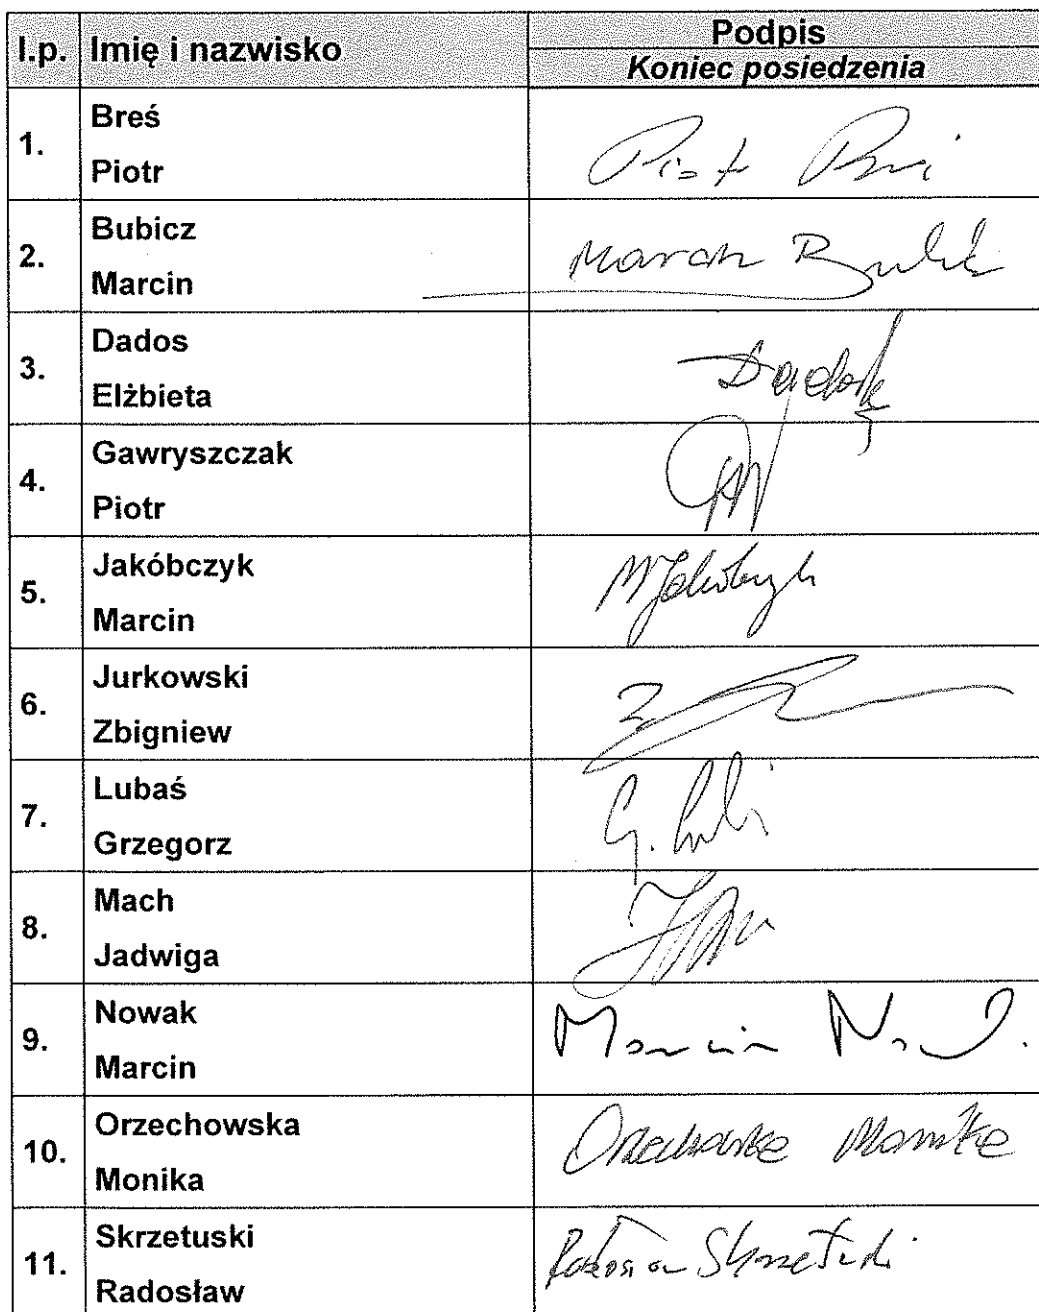 l.p. Imię i nazwisko Podpis
Koniec posiedzenia
1. Breś
Piotr
Piotr
2. Bubicz
Marcin
Marcin
3. Dados
Elżbieta
4. Gawryszczak
Piotr
5. Jakóbczyk
Marcin
M Jakóbczyk
6. Jurkowski
Zbigniew
7. Lubaś
Grzegorz
8. Mach
Jadwiga
9. Nowak
Marcin
Marcin
10. Orzechowska
Monika
Orzechowska Monika
11. Skrzetuski
Radosław
Radosław Skrzetuski